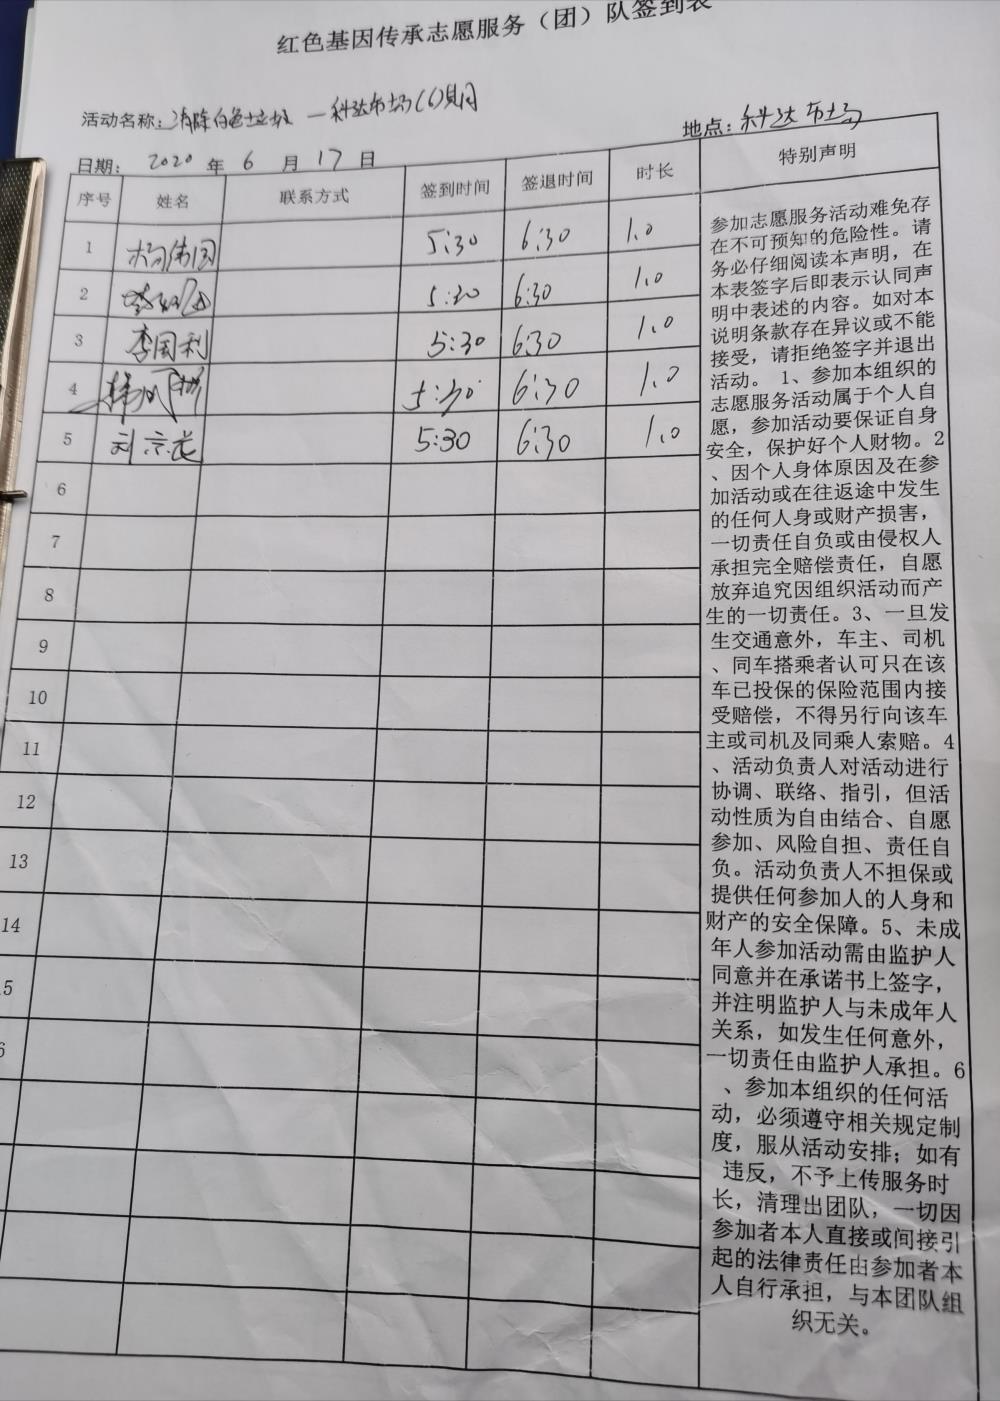 红色基因传承志愿服务（团）队签到表
活动名称：消除白色垃圾 — 科达市场（6）月 地点：科达市场
日期： 2020 年 6 月 17 日
序号 姓名 联系方式 签到时间 签退时间 时长 特别声明
1 杨伟国 5:30 6:30 1.0
2 5:30 6:30 1.0
3 李国利 5:30 6:30 1.0
4 韩 5:30 6:30 1.0
5 刘京龙 5:30 6:30 1.0
6
7
8
9
10
11
12
13
14
5
6
参加志愿服务活动难免存
在不可预知的危险性。请
务必仔细阅读本声明，在
本表签字后即表示认同声
明中表述的内容。如对本
说明条款存在异议或不能
接受，请拒绝签字并退出
活动。 1、参加本组织的
志愿服务活动属于个人自
愿，参加活动要保证自身
安全，保护好个人财物。2
、因个人身体原因及在参
加活动或在往返途中发生
的任何人身或财产损害，
一切责任自负或由侵权人
承担完全赔偿责任，自愿
放弃追究因组织活动而产
生的一切责任。3、一旦发
生交通意外，车主、司机
、同车搭乘者认可只在该
车已投保的保险范围内接
受赔偿，不得另行向该车
主或司机及同乘人索赔。4
、活动负责人对活动进行
协调、联络、指引，但活
动性质为自由结合、自愿
参加、风险自担、责任自
负。活动负责人不担保或
提供任何参加人的人身和
财产的安全保障。5、未成
年人参加活动需由监护人
同意并在承诺书上签字，
并注明监护人与未成年人
关系，如发生任何意外，
一切责任由监护人承担。6
、参加本组织的任何活
动，必须遵守相关规定制
度，服从活动安排；如有
违反，不予上传服务时
长，清理出团队，一切因
参加者本人直接或间接引
起的法律责任由参加者本
人自行承担，与本团队组
织无关。